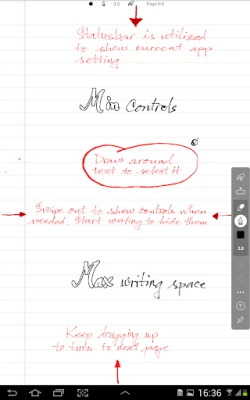 Statusbar is utilized
to show current app
setting
Min Controls
Draw around
text to select it
Swipe out to show controls when
needed. Start writing to hide them
Max writing space
Keep dragging up
to turn to next page
16:36